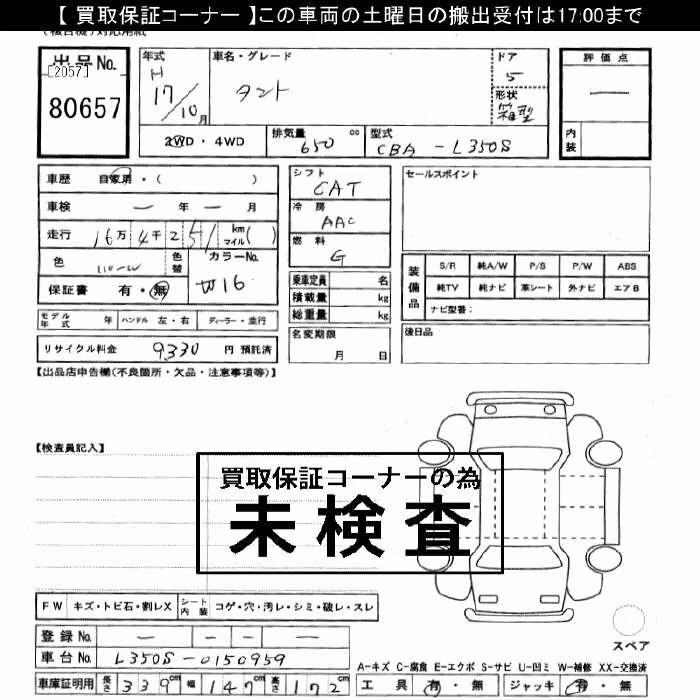 【 買取保証コーナー 】この車両の土曜日の搬出受付は17:00まで
出品No.
[2057]
80657
年式
H
17/10月
車名・グレード
タント
ドア
5
形状
箱型
評価点
―
内装
2WD・4WD
排気量
650 cc
型式
CBA - L350S
車歴 自家用・( )
車検 ― 年 ― 月
走行 16万 4千 2 5 1 km マイル( )
色
色替
カラーNo.
W16
保証書 有・無
シフト
CAT
冷房
AAC
燃料
G
乗車定員 名
積載量 kg
総重量 kg
セールスポイント
装備品
S/R 純A/W P/S P/W ABS
純TV 純ナビ 革シート 外ナビ エアB
ナビ型番:
モデル年式 年 ハンドル 左・右 ディーラー・並行
名変期限
月 日
後日品
リサイクル料金 9330 円 預託済
【出品店申告欄(不良箇所・欠品・注意事項等)】
【検査員記入】
買取保証コーナーの為
未検査
FW キズ・トビ石・割レX シート内装 コゲ・穴・汚レ・シミ・破レ・スレ
登録No. ― - - ―
車台No. L350S-0150959
車庫証明用 長さ 339cm 幅 147cm 高さ 172cm
スペア
A-キズ C-腐食 E-エクボ S-サビ U-凹ミ W-補修 XX-交換済
工具 有・無 ジャッキ 有・無